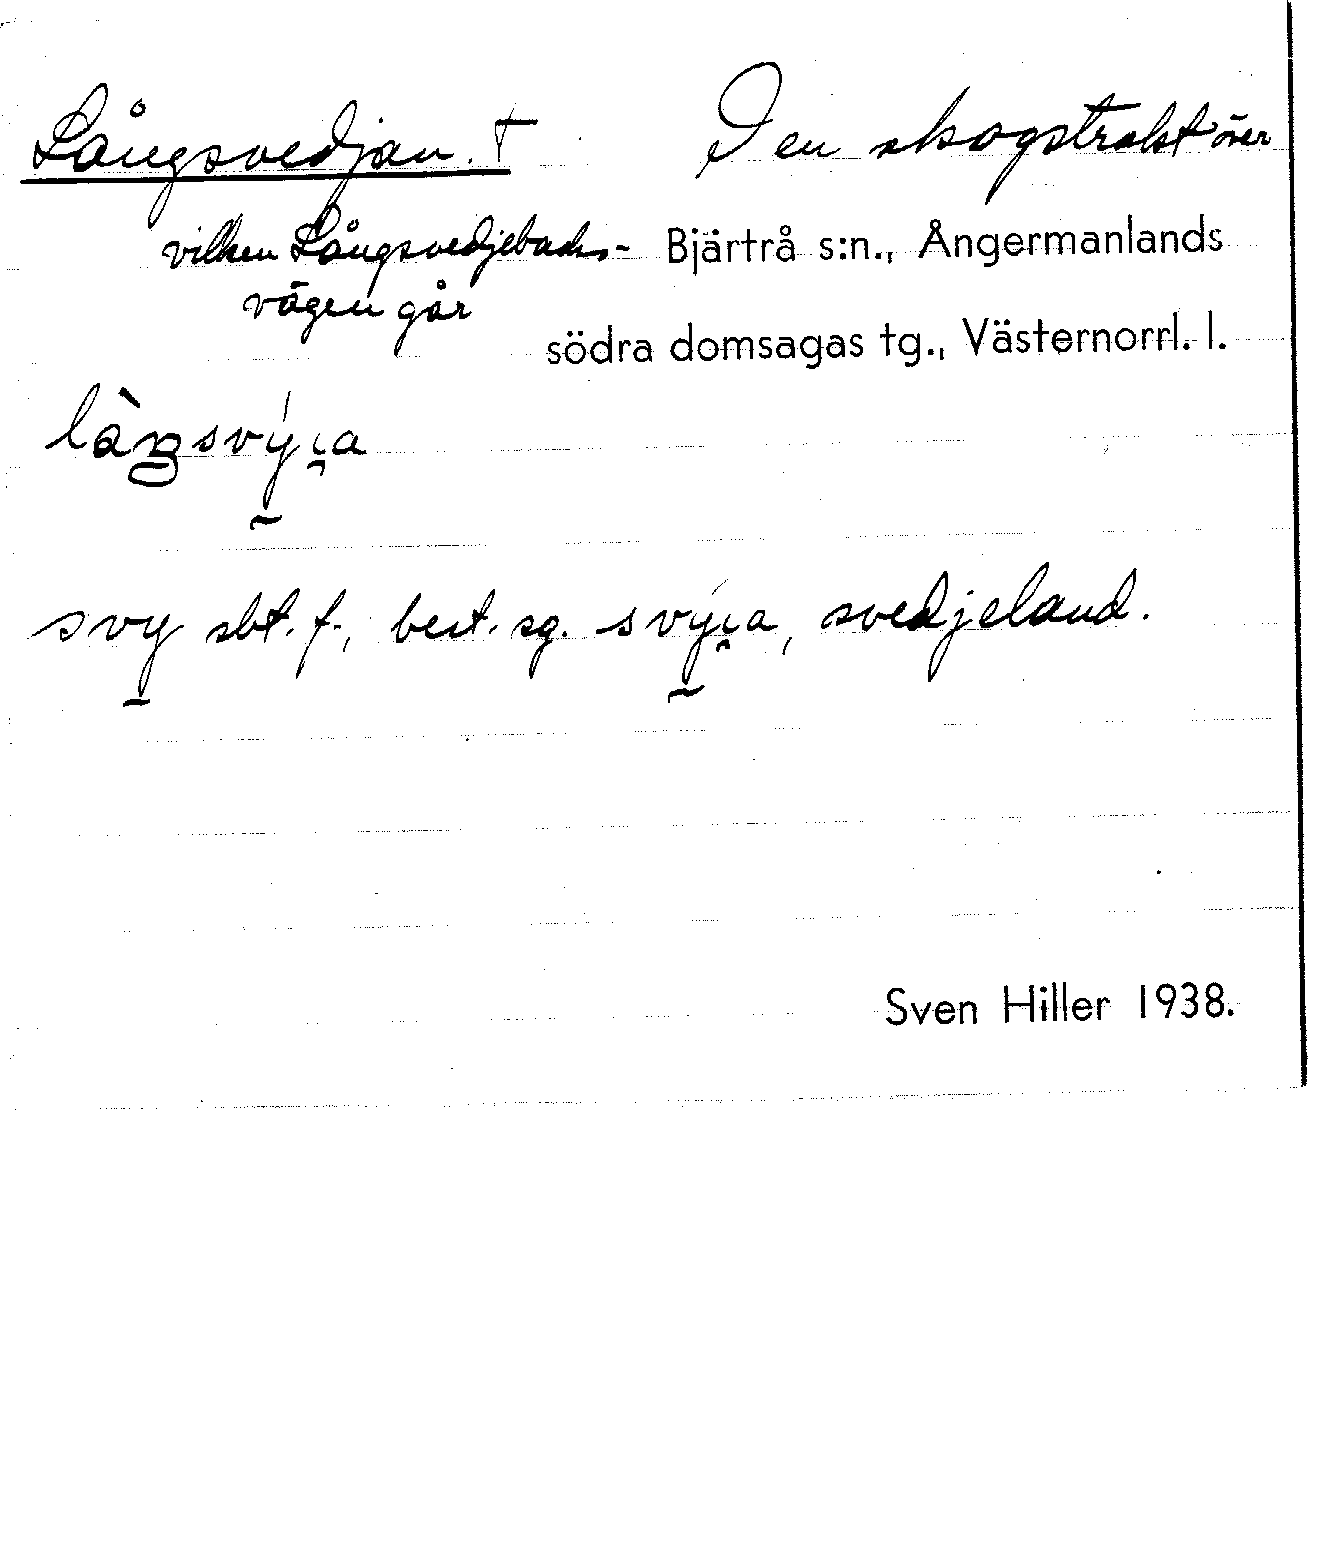 Långsvedjan. † Den skogstrakt över
vilken Långsvedjebacks- Bjärtrå s:n., Ångermanlands
vägen går
södra domsagas tg., Västernorrl. l.
svy sbt. f., best. sg. svý̰i̯a, svedjeland.
Sven Hiller 1938.